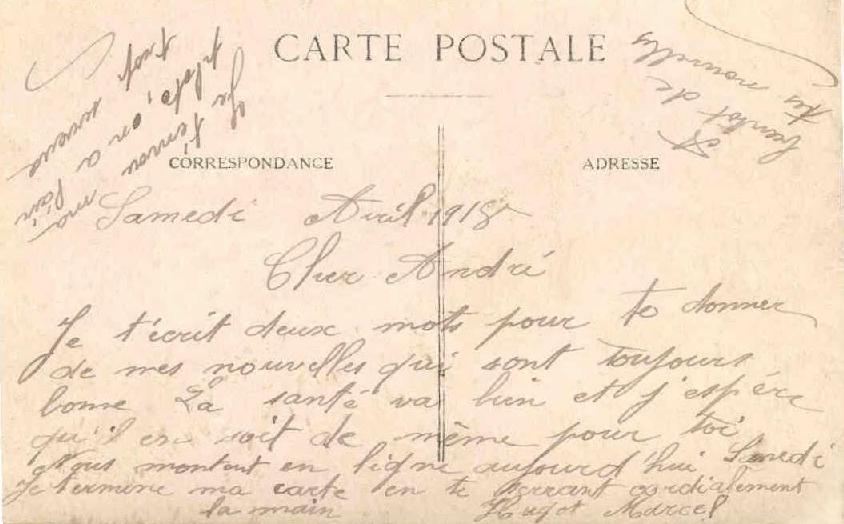 CARTE POSTALE
CORRESPONDANCE
ADRESSE
Samedi Avril 1918
Cher André
Je t'écrit deux mots pour te donner
de mes nouvelles qui sont toujours
bonne La santé va bien et j'espère
qu'il en soit de même pour toi
Nous montent en ligne aujourd'hui Samedi
Je termine ma carte en te serrant cordialement
la main Hugot Marcel
A
bientôt de
tes nouvelles
Je t'envoi ma
on a l'air
tout